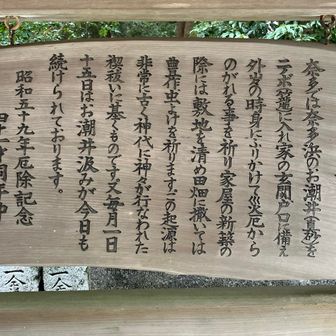 奈多では奈多浜のお潮井(真砂)を
テボ(篭)に入れ家の玄関戸口に備え
外出の時身にふりかけて災厄から
のがれる事を祈り家屋の新築の
際には敷地を清め田畑に撒いては
豊作虫よけを祈りますこの起源は
非常に古く神代に神々が行なわれた
禊祓いに基くものです又毎月一日
十五日はお潮井汲みが今日も
続けられております。
昭和五十九年厄除記念